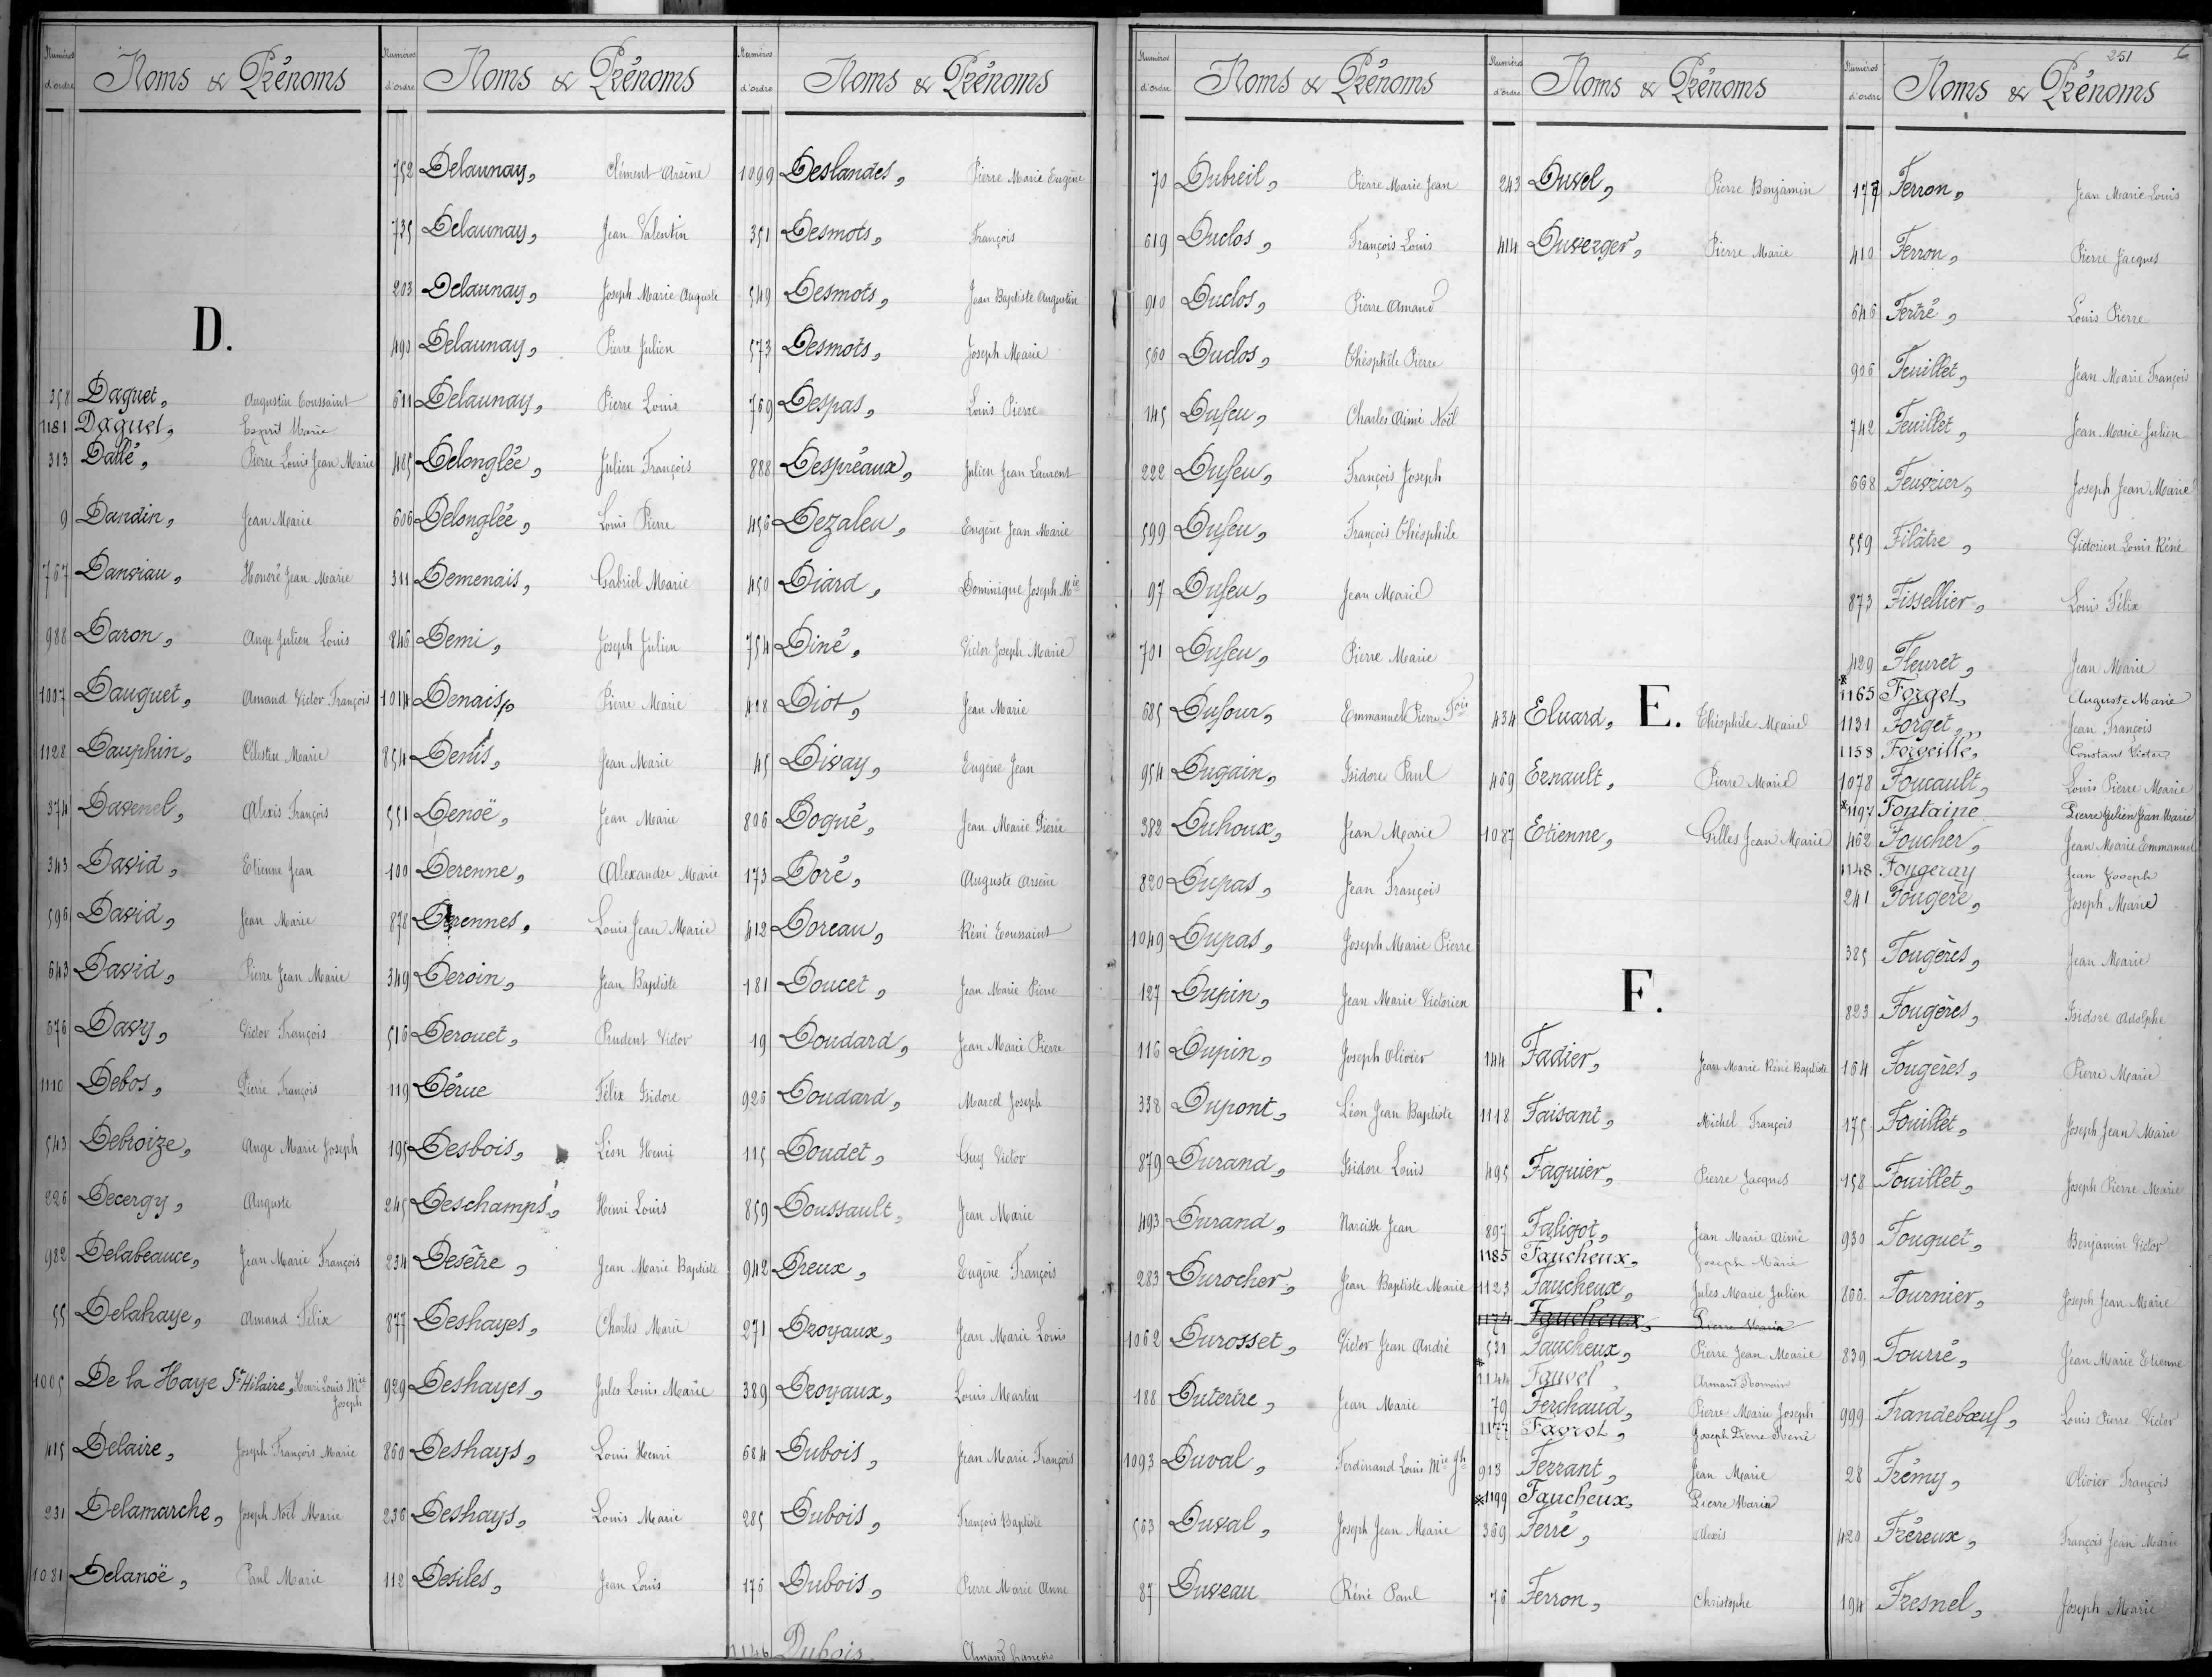 Numéros d'ordre Noms & Prénoms
D.
358 Daguet, Augustin Toussaint
1181 Daguet, Esprit Marie
313 Dallé, Pierre Louis Jean Marie
9 Dandin, Jean Marie
767 Danviau, Honoré Jean Marie
988 Daron, Ange Julien Louis
1007 Dauguet, Amand Victor François
1128 Dauphin, Célestin Marie
374 Davenel, Alexis François
343 David, Etienne Jean
596 David, Jean Marie
643 David, Pierre Jean Marie
676 Davy, Victor François
1110 Debos, Pierre François
543 Debroize, Ange Marie Joseph
226 Decergy, Auguste
982 Delabeauce, Jean Marie François
55 Delahaye, Amand Félix
1005 De la Haye St Hilaire, Henri Louis Mie
Joseph
415 Delaire, Joseph François Marie
231 Delamarche, Joseph Noël Marie
1081 Delanoë, Paul Marie
Numéros d'ordre Noms & Prénoms
752 Delaunay, Clément Arsène
735 Delaunay, Jean Valentin
203 Delaunay, Joseph Marie Auguste
490 Delaunay, Pierre Julien
611 Delaunay, Pierre Louis
485 Delonglée, Julien François
606 Delonglée, Louis Pierre
311 Demenais, Gabriel Marie
846 Demi, Joseph Julien
1014 Denais, Pierre Marie
854 Denis, Jean Marie
551 Denoë, Jean Marie
100 Derenne, Alexandre Marie
878 Derennes, Louis Jean Marie
349 Deroin, Jean Baptiste
516 Derouet, Prudent Victor
119 Dérue Félix Isidore
195 Desbois, Léon Henri
245 Deschamps, Henri Louis
234 Desêtre, Jean Marie Baptiste
877 Deshayes, Charles Marie
929 Deshayes, Jules Louis Marie
860 Deshays, Louis Henri
236 Deshays, Louis Marie
112 Desiles, Jean Louis
Numéros d'ordre Noms & Prénoms
1099 Deslandes, Pierre Marie Eugène
351 Desmots, François
549 Desmots, Jean Baptiste Augustin
573 Desmots, Joseph Marie
769 Despas, Louis Pierre
888 Despréaux, Julien Jean Laurent
456 Dezaleu, Eugène Jean Marie
450 Diard, Dominique Joseph Mie
754 Diné, Victor Joseph Marie
418 Diot, Jean Marie
45 Divay, Eugène Jean
806 Dogué, Jean Marie Pierre
173 Doré, Auguste Arsène
412 Doreau, Réné Toussaint
181 Doucet, Jean Marie Pierre
19 Doudard, Jean Marie Pierre
926 Doudard, Marcel Joseph
115 Doudet, Guy Victor
859 Doussault, Jean Marie
942 Dreux, Eugène François
271 Droyaux, Jean Marie Louis
389 Droyaux, Louis Martin
684 Dubois, Jean Marie François
285 Dubois, François Baptiste
176 Dubois, Pierre Marie Anne
1146 Dubois Amand François
Numéros d'ordre Noms & Prénoms
70 Dubreil, Pierre Marie Jean
619 Duclos, François Louis
910 Duclos, Pierre Amand
560 Duclos, Théophile Pierre
145 Dufeu, Charles Aimé Noël
222 Dufeu, François Joseph
599 Dufeu, François Théophile
97 Dufeu, Jean Marie
701 Dufeu, Pierre Marie
685 Dufour, Emmanuel Pierre Fois
954 Dugain, Isidore Paul
382 Duhoux, Jean Marie
820 Dupas, Jean François
1049 Dupas, Joseph Marie Pierre
127 Dupin, Jean Marie Victorien
116 Dupin, Joseph Olivier
338 Dupont, Léon Jean Baptiste
879 Durand, Isidore Louis
493 Durand, Narcisse Jean
283 Durocher, Jean Baptiste Marie
1062 Durosset, Victor Jean André
188 Dutertre, Jean Marie
1093 Duval, Ferdinand Louis Mie Jh
563 Duval, Joseph Jean Marie
87 Duveau Réné Paul
Numéros d'ordre Noms & Prénoms
243 Duvel, Pierre Benjamin
414 Duverger, Pierre Marie
E.
434 Eluard, Théophile Marie
469 Ernault, Pierre Marie
1087 Etienne, Gilles Jean Marie
F.
144 Fadier, Jean Marie Réné Baptiste
1118 Faisant, Michel François
495 Faguier, Pierre Jacques
897 Faligot, Jean Marie Aimé
1185 Faucheux, Joseph Marie
1123 Faucheux, Jules Marie Julien
1174 Faucheux, Pierre Marie
531 Faucheux, Pierre Jean Marie
* 1144 Fauvel Armand Romain
79 Ferchaud, Pierre Marie Joseph
1177 Favrot, Joseph Pierre René
913 Ferrant, Jean Marie
* 1199 Faucheux, Pierre Marie
369 Ferré, Alexis
76 Ferron, Christophe
251
Numéros d'ordre Noms & Prénoms
177 Ferron, Jean Marie Louis
410 Ferron, Pierre Jacques
646 Fertré, Louis Pierre
906 Feuillet, Jean Marie François
742 Feuillet, Jean Marie Julien
668 Feuvrier, Joseph Jean Marie
559 Filâtre, Victorien Louis Réné
873 Fissellier, Louis Félix
429 Fleuret, Jean Marie
* 1165 Forget, Auguste Marie
1131 Forget, Jean François
1158 Forveille, Constant Victor
1078 Foucault, Louis Pierre Marie
* 1197 Fontaine Pierre Julien Jean Marie
462 Foucher, Jean Marie Emmanuel
1148 Fougeray Jean Joseph
241 Fougère, Joseph Marie
385 Fougères, Jean Marie
823 Fougères, Isidore Adolphe
164 Fougères, Pierre Marie
175 Fouillet, Joseph Jean Marie
158 Fouillet, Joseph Pierre Marie
930 Fouguet, Benjamin Victor
800 Fournier, Joseph Jean Marie
839 Fourré, Jean Marie Etienne
999 Frandebœuf, Louis Pierre Victor
28 Frémy, Olivier François
420 Fréreux, François Jean Marie
194 Fresnel, Joseph Marie